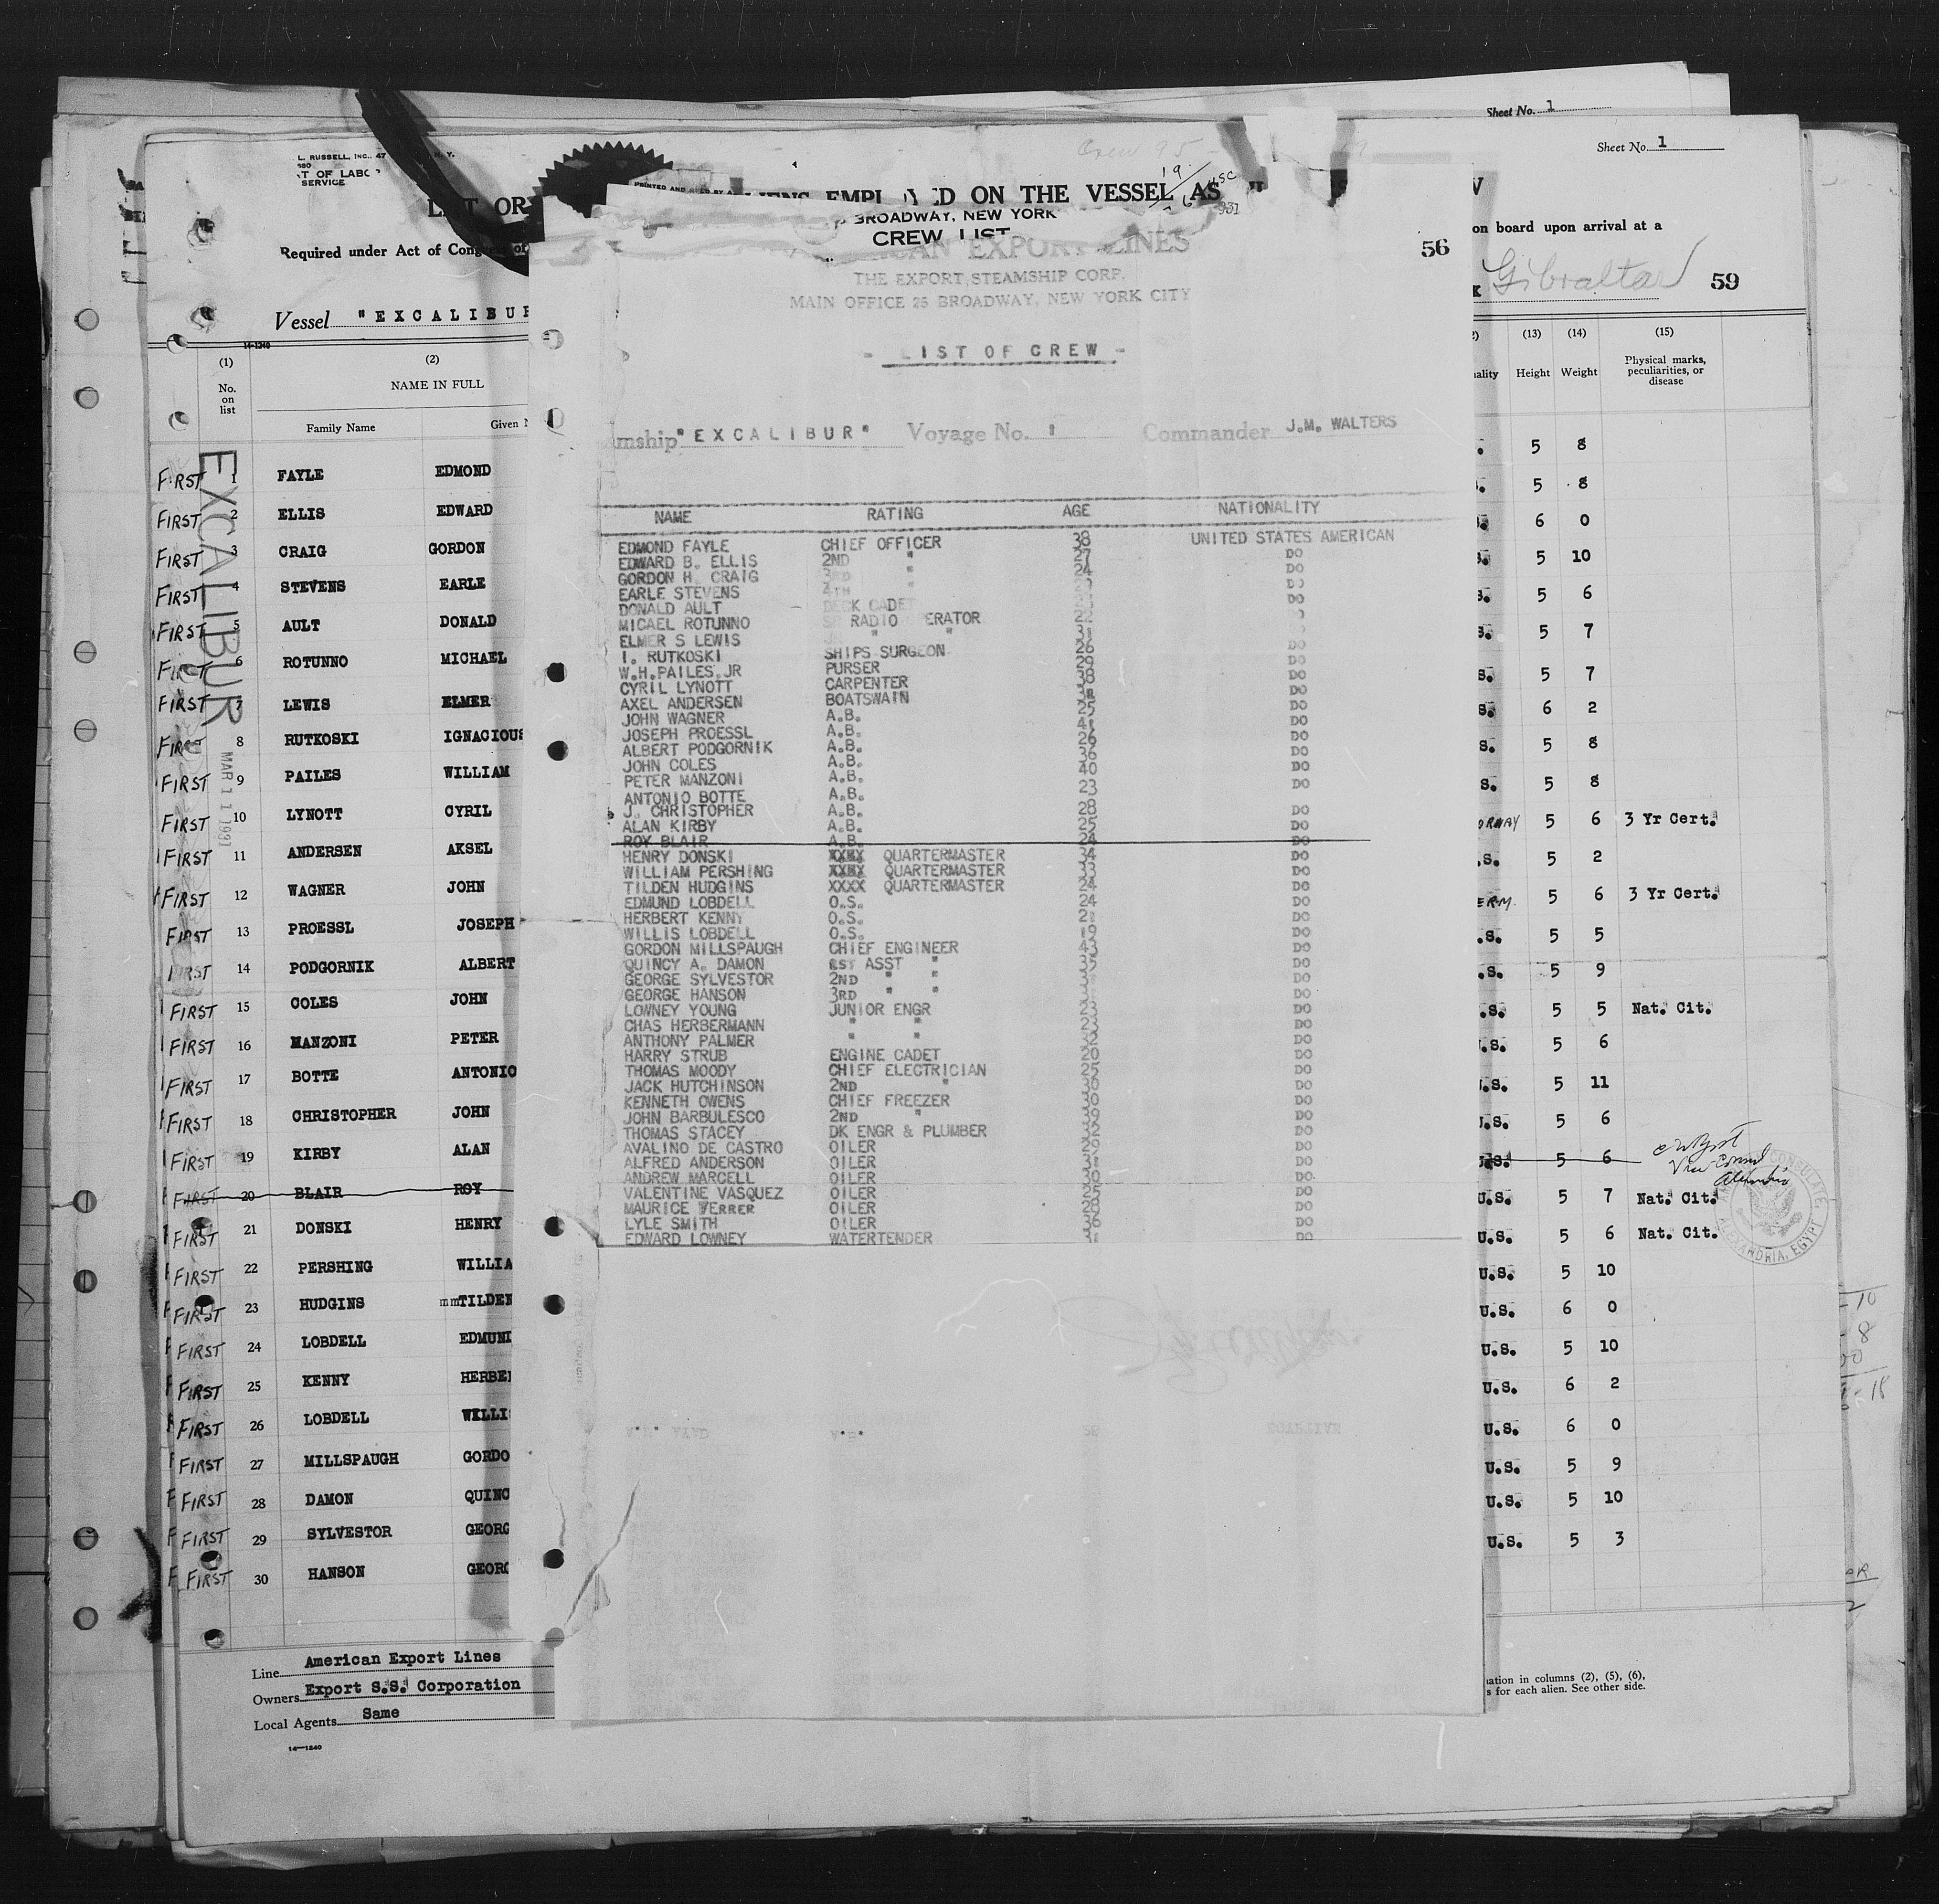 Sheet No. 1
Sheet No. 1
L. RUSSELL, INC., 47
SERVICE
EMPL
D ON THE VESSEL AS
BROADWAY, NEW YORK
CREW LIST
Required under Act of Congress of
on board upon arrival at a
Gibraltar
59
56
Vessel "EXCALIBUR
EXPORT LINES
THE EXPORT STEAMSHIP CORP.
MAIN OFFICE 25 BROADWAY, NEW YORK CITY
- LIST OF CREW -
amship "EXCALIBUR" Voyage No. 1 Commander J.M. WALTERS
NAME RATING AGE NATIONALITY
EDMOND FAYLE CHIEF OFFICER 38 UNITED STATES AMERICAN
EDWARD B. ELLIS 2ND " 27 DO
GORDON H. CRAIG 3RD " 24 DO
EARLE STEVENS 4TH DO
DONALD AULT DECK CADET DO
MICAEL ROTUNNO SR RADIO OPERATOR 22
ELMER S LEWIS JR " " 31
I. RUTKOSKI SHIPS SURGEON 26 DO
W.H.PAILES.JR PURSER 29 DO
CYRIL LYNOTT CARPENTER 38 DO
AXEL ANDERSEN BOATSWAIN DO
JOHN WAGNER A.B. 25 DO
JOSEPH PROESSL A.B. 41 DO
ALBERT PODGORNIK A.B. 26 DO
JOHN COLES A.B. 36 DO
PETER MANZONI A.B. 40 DO
ANTONIO BOTTE A.B. 23 DO
J. CHRISTOPHER A.B. 28 DO
ALAN KIRBY A.B. 25 DO
ROY BLAIR A.B. 24 DO
HENRY DONSKI XXXX QUARTERMASTER 34 DO
WILLIAM PERSHING XXXX QUARTERMASTER 33 DO
TILDEN HUDGINS XXXX QUARTERMASTER 24 DO
EDMUND LOBDELL O.S. 24 DO
HERBERT KENNY O.S. 21 DO
WILLIS LOBDELL O.S. 19 DO
GORDON MILLSPAUGH CHIEF ENGINEER 43 DO
QUINCY A. DAMON 1ST ASST " 35 DO
GEORGE SYLVESTOR 2ND " " DO
GEORGE HANSON 3RD " " DO
LOWNEY YOUNG JUNIOR ENGR 23 DO
CHAS HERBERMANN " " 23 DO
ANTHONY PALMER " " 32 DO
HARRY STRUB ENGINE CADET 20 DO
THOMAS MOODY CHIEF ELECTRICIAN 25 DO
JACK HUTCHINSON 2ND " 30 DO
KENNETH OWENS CHIEF FREEZER 30 DO
JOHN BARBULESCO 2ND " 39 DO
THOMAS STACEY DK ENGR & PLUMBER 32 DO
AVALINO DE CASTRO OILER 29 DO
ALFRED ANDERSON OILER 31 DO
ANDREW MARCELL OILER 30 DO
VALENTINE VASQUEZ OILER 25 DO
MAURICE VERRER OILER 28 DO
LYLE SMITH OILER 36 DO
EDWARD LOWNEY WATERTENDER 31 DO
(1) (2)
No. on list
NAME IN FULL
Family Name Given
(13) (14) (15)
Height Weight Physical marks, peculiarities, or disease
EXCALIBUR
MAR 11 1931
FIRST 1 FAYLE EDMOND 5 8
FIRST 2 ELLIS EDWARD 5 8
FIRST 3 CRAIG GORDON 6 0
FIRST 4 STEVENS EARLE 5 10
FIRST 5 AULT DONALD 5 6
FIRST 6 ROTUNNO MICHAEL 5 7
FIRST 7 LEWIS ELMER 5 7
FIRST 8 RUTKOSKI IGNACIOUS 6 2
FIRST 9 PAILES WILLIAM 5 8
FIRST 10 LYNOTT CYRIL 5 8
FIRST 11 ANDERSEN AKSEL 5 6 3 Yr Cert.
FIRST 12 WAGNER JOHN 5 2
FIRST 13 PROESSL JOSEPH 5 6 3 Yr Cert.
FIRST 14 PODGORNIK ALBERT 5 5
FIRST 15 COLES JOHN 5 9
FIRST 16 MANZONI PETER 5 5 Nat. Cit.
FIRST 17 BOTTE ANTONIO 5 6
FIRST 18 CHRISTOPHER JOHN U.S. 5 11
FIRST 19 KIRBY ALAN U.S. 5 6
FIRST 20 BLAIR ROY U.S. 5 6
Vice Consul
FIRST 21 DONSKI HENRY U.S. 5 7 Nat. Cit.
FIRST 22 PERSHING WILLIA U.S. 5 6 Nat. Cit.
FIRST 23 HUDGINS mmTILDEN U.S. 5 10
FIRST 24 LOBDELL EDMUND U.S. 6 0
FIRST 25 KENNY HERBE U.S. 5 10
FIRST 26 LOBDELL WILLI U.S. 6 2
FIRST 27 MILLSPAUGH GORDO U.S. 6 0
FIRST 28 DAMON QUINC U.S. 5 9
FIRST 29 SYLVESTOR GEORG U.S. 5 10
FIRST 30 HANSON GEORG U.S. 5 3
CONSULATE
ALEXANDRIA, EGYPT
Line American Export Lines
Owners Export S.S. Corporation
Local Agents Same
14-1240
ation in columns (2), (5), (6),
s for each alien. See other side.